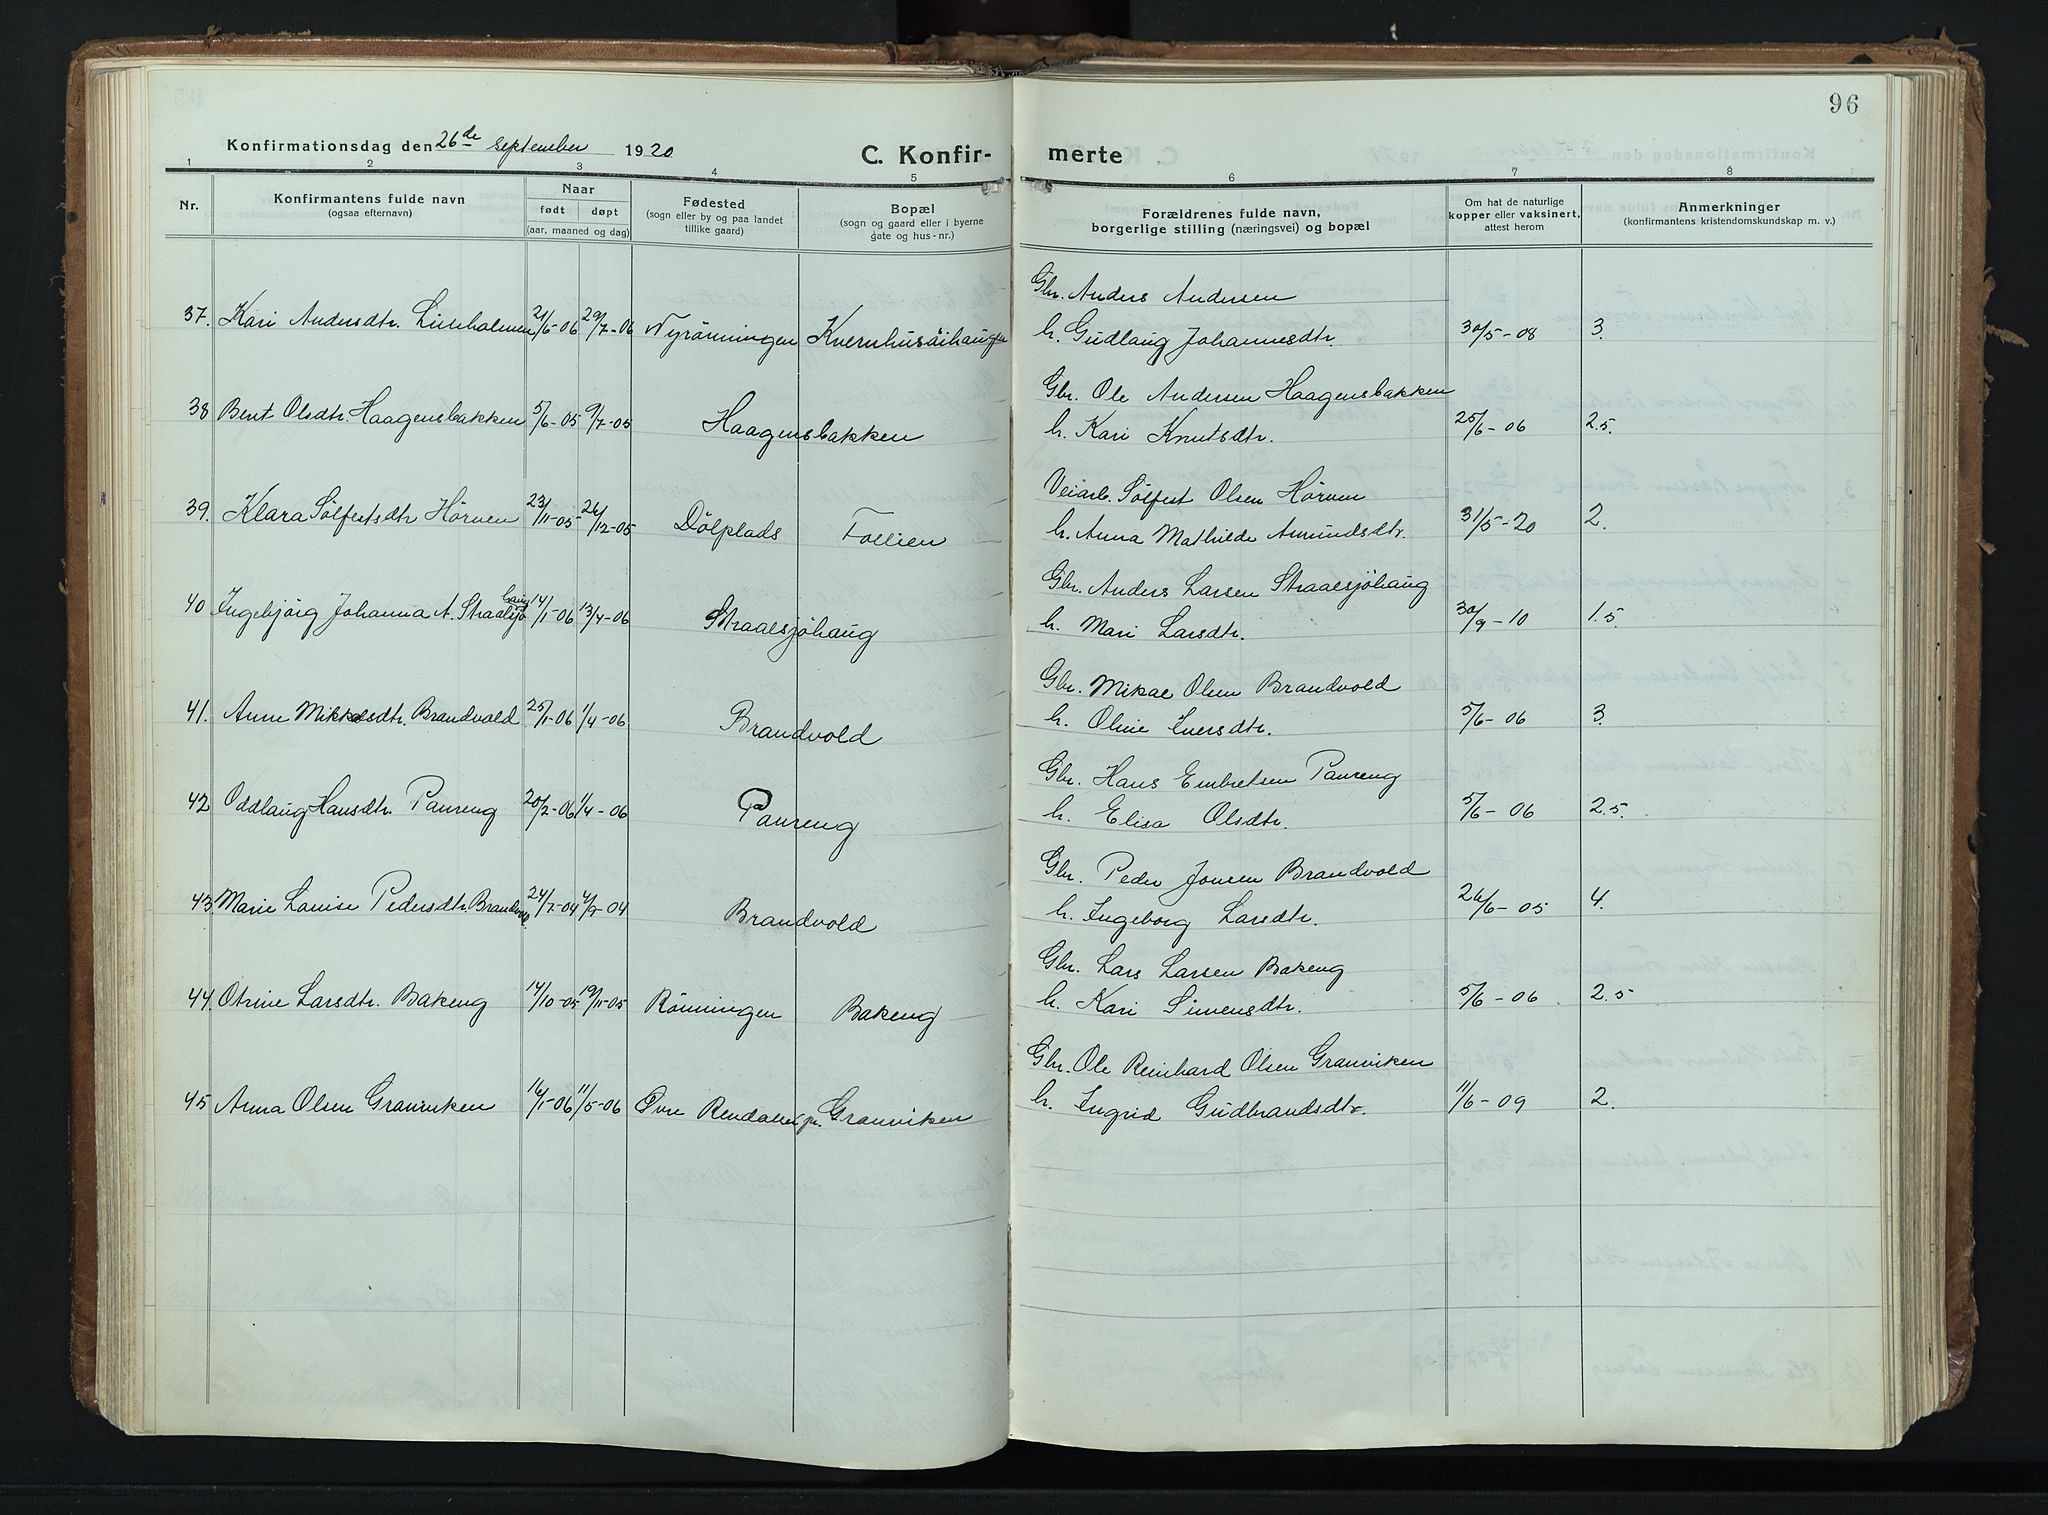 96
Konfirmationsdag den 26de september 1920
C. Konfir- merte
1 2 3 4 5 6 7 8
Nr.
Konfirmantens fulde navn
(ogsaa efternavn)
Naar
født døpt
(aar, maaned og dag)
Fødested
(sogn eller by og paa landet
tillike gaard)
Bopæl
(sogn og gaard eller i byerne
gate og hus-nr.)
Forældrenes fulde navn,
borgerlige stilling (næringsvei) og bopæl
Om hat de naturlige
kopper eller vaksinert,
attest herom
Anmerkninger
(konfirmantens kristendomskundskap m. v.)
Gbr. Anders Andersen
37. Kari Andersdtr. Lilleholmen 21/6-06 29/7-06 Nyrönningen Kvernhusäihaugen h. Gudlaug Johannesdtr. 30/5-08 3.
Gbr. Ole Andersen Haagensbakken
38 Berit Olsdtr. Haagensbakken 5/6-05 9/7-05 Haagensbakken h. Kari Knutsdtr. 25/6-06 2.5.
Veiarb. Sölfest Olsen Hörven
39. Klara Sölfestsdtr Hörven 23/11-05 26/12-05 Dölplads Follien h. Anna Mathilde Amundsdtr. 31/5-20 2.
Gbr. Anders Larsen Straalsjöhaug
40 Ingebjörg Johanna A. Straalsjöhaug 14/1-06 13/4-06 Straalsjöhaug h. Mari Larsdtr. 30/9-10 1.5.
Gbr. Mikal Olsen Brandvold
41. Anne Mikkelsdtr. Brandvold 25/1-06 1/4-06 Brandvold h. Oline Iversdtr. 5/6-06 3.
Gbr. Hans Embretsen Paureng
42 Oddlaug Hansdtr. Paureng 20/2-06 1/4-06 Paureng h. Elisa Olsdtr. 5/6-06 2.5.
Gbr. Peder Jonsen Brandvold
43. Marie Louise Pedersdtr. Brandvold 24/7-04 4/9-04 Brandvold h. Ingeborg Larsdtr. 26/6-05 4.
Gbr. Lars Larsen Bakeng
44. Otrine Larsdtr. Bakeng 14/10-05 19/11-05 Rönningen Bakeng h. Kari Simensdtr. 5/6-06 2.5
Gbr. Ole Reinhard Olsen Granviken
45 Anna Olsen Granviken 16/1-06 11/5-06 Øvre Rendalen pr. Granviken h. Ingrid Gudbrandsdtr. 11/6-09 2.